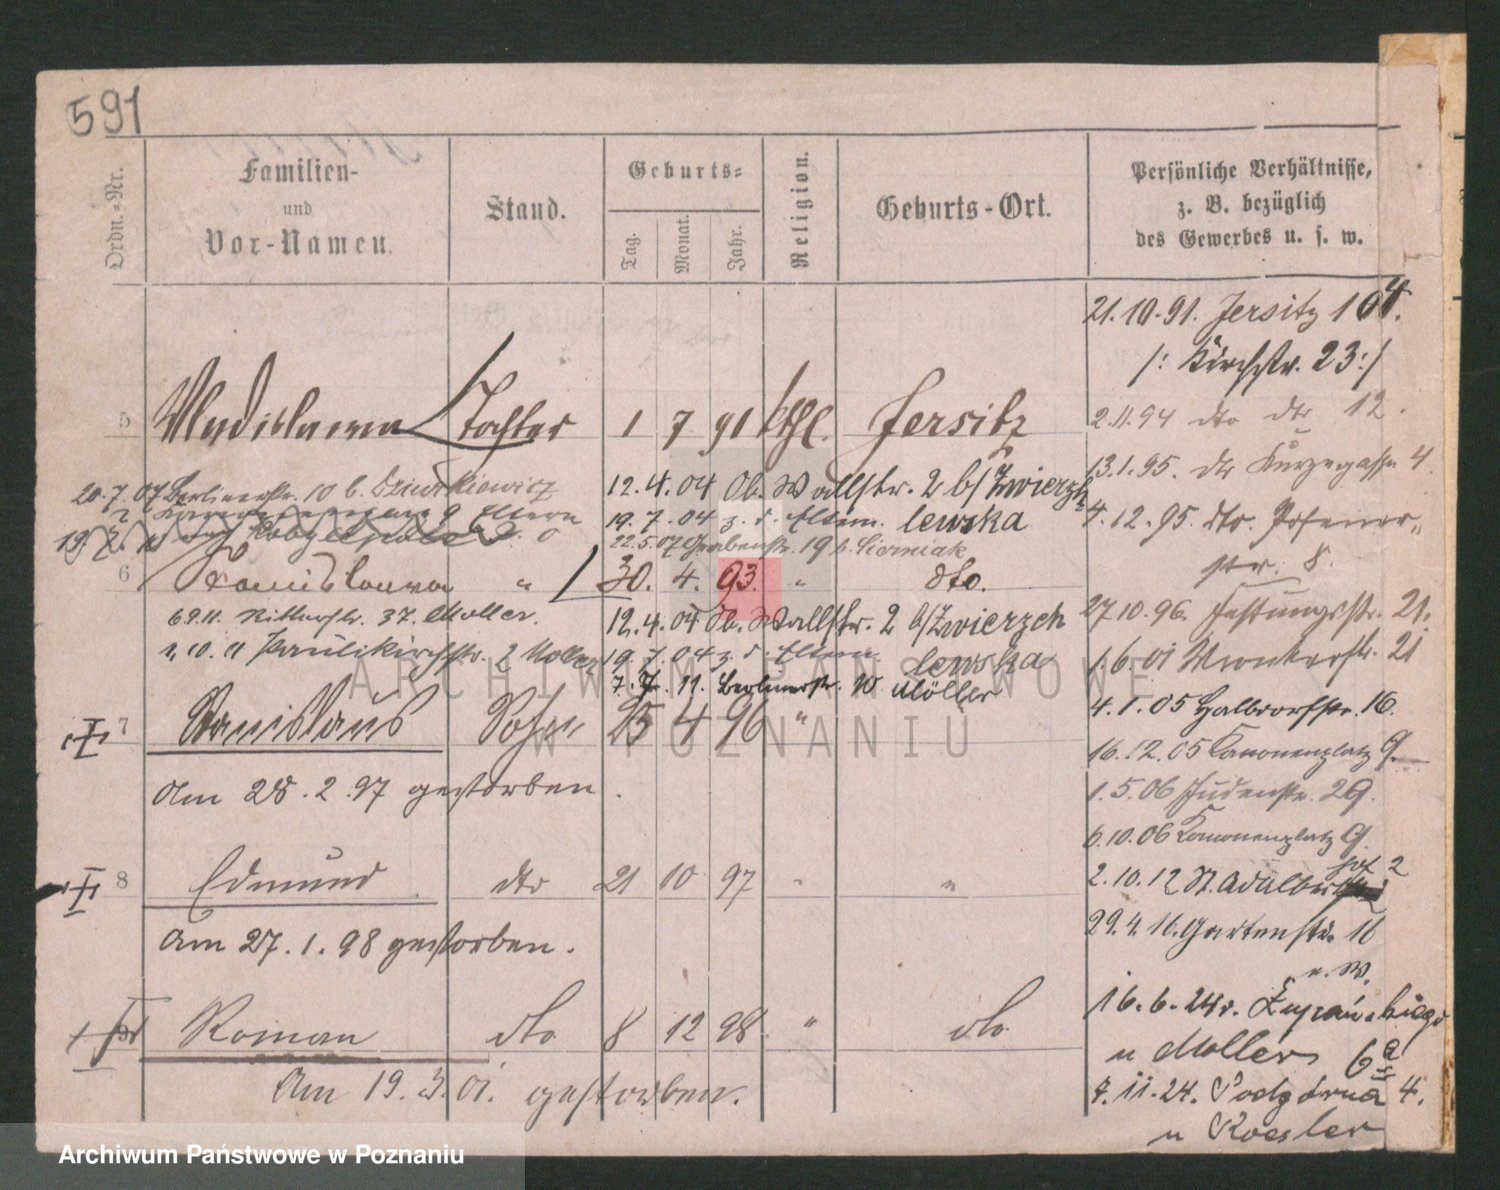 591
Ordn.-Nr.
Familien-
und
Vor-Namen.
Stand.
Geburts-
Tag.
Monat.
Jahr.
Religion.
Geburts-Ort.
Persönliche Verhältnisse,
z. B. bezüglich
des Gewerbes u. s. w.
21.10.91. Jersitz 104.
/: Kirchstr. 23:/
5 Wladislawa Tochter 1 7 91 kthl. Jersitz
2.11.94 dto dto 12.
13.1.95. dto Kurzegasse 4.
20.7.07 Berlinerstr. 10 b.
12.4.04 Ob. Wallstr. 2 b/Zwierzch
19.7.04 z. d. Eltern. lewska
4.12.95. dto. Posener-
str. 8.
22.5.07 Grabenstr. 19 b. Sierniak
6 Stanislawa " 30. 4. 93. " dto.
27.10.96. Festungsstr. 21.
6.9.11. Ritterstr. 37. Moller.
12.4.04 Ob. Wallstr. 2 b/Zwierzch
1.10.11 Paulikirchstr. 2 Moller
19.7.04 z. d. Eltern lewska
1.6.01 Wronkerstr. 21
7.7.11. Berlinerstr. 10 Möller
4.1.05 Halbdorfstr. 16.
7 Stanislaus Sohn 25 4 96 "
16.12.05 Kanonenplatz 9.
am 28.2.97 gestorben.
1.5.06 Judenstr. 29.
6.10.06 Kanonenplatz 9.
8 Edmund dto 21 10 97 " "
2.10.12 St. Adalbert 2
am 27.1.98 gestorben.
29.4.16. Gartenstr. 16
u. W.
16.6.24r.
Roman dto 8 12 98. " dto
u Moller 6a
Am 19.3.01. gestorben.
7.11.24. Podgórna 4.
u Roesler
ARCHIWUM PAŃSTWOWE
W POZNANIU
Archiwum Państwowe w Poznaniu